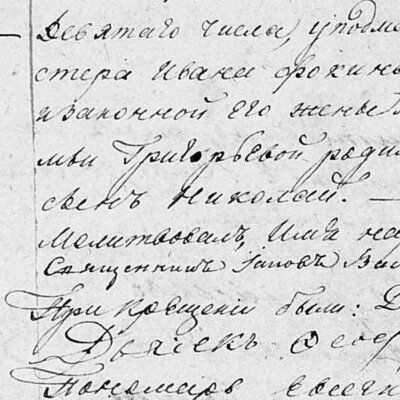 Девятаго числа, у подма
стера Ивана Фокина
и законной его жены
мьи Григорьевой роди
сынъ Николай. —
Молитвовалъ, Имя на
Священникъ Iаковъ Ва
При крещенiи были:
Дьячекъ Ѳеод
Пономарь Евсеги